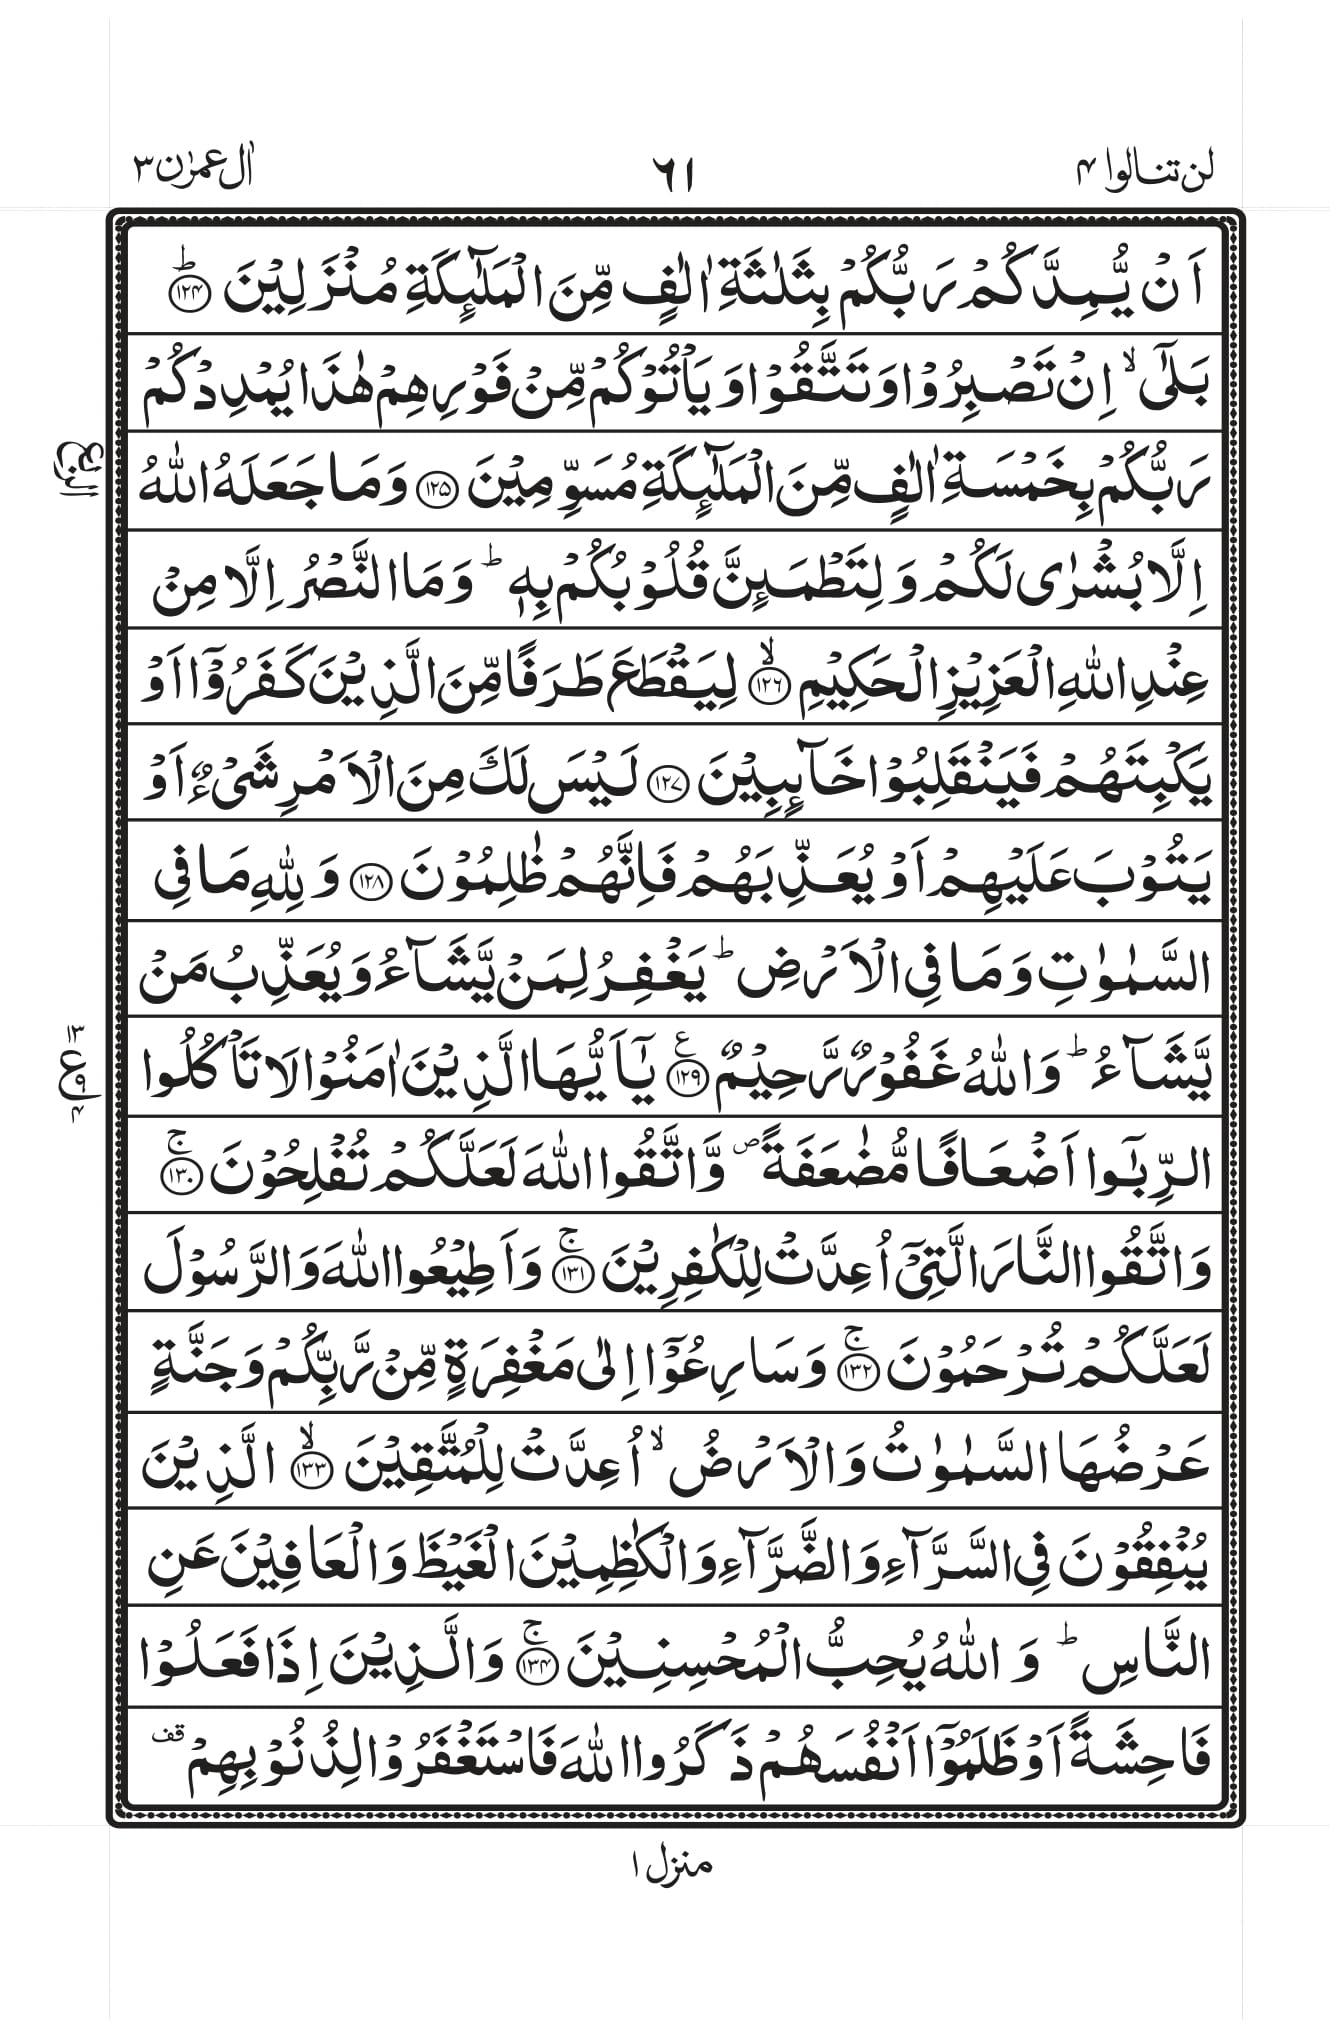 لن تنالوا ۴ ٦١ اٰل عمرٰن ۳
اَنۡ يُّمِدَّكُمۡ رَبُّكُمۡ بِثَلٰثَةِ اٰلٰفٍ مِّنَ الۡمَلٰٓٮِٕكَةِ مُنۡزَلِيۡنَ ؕ‏ ﴿۱۲۴﴾
بَلٰٓى ۙ اِنۡ تَصۡبِرُوۡا وَتَتَّقُوۡا وَيَاۡتُوۡكُمۡ مِّنۡ فَوۡرِهِمۡ هٰذَا يُمۡدِدۡكُمۡ
رَبُّكُمۡ بِخَمۡسَةِ اٰلٰفٍ مِّنَ الۡمَلٰٓٮِٕكَةِ مُسَوِّمِيۡنَ ﴿۱۲۵﴾ وَمَا جَعَلَهُ اللّٰهُ
اِلَّا بُشۡرٰى لَكُمۡ وَلِتَطۡمَٮِٕنَّ قُلُوۡبُكُمۡ بِهٖ ؕ وَمَا النَّصۡرُ اِلَّا مِنۡ
عِنۡدِ اللّٰهِ الۡعَزِيۡزِ الۡحَكِيۡمِ ۙ‏ ﴿۱۲۶﴾ لِيَقۡطَعَ طَرَفًا مِّنَ الَّذِيۡنَ كَفَرُوۡۤا اَوۡ
يَكۡبِتَهُمۡ فَيَنۡقَلِبُوۡا خَآٮِٕبِيۡنَ ﴿۱۲۷﴾ لَيۡسَ لَكَ مِنَ الۡاَمۡرِ شَىۡءٌ اَوۡ
يَتُوۡبَ عَلَيۡهِمۡ اَوۡ يُعَذِّبَهُمۡ فَاِنَّهُمۡ ظٰلِمُوۡنَ ﴿۱۲۸﴾ وَلِلّٰهِ مَا فِى
السَّمٰوٰتِ وَمَا فِى الۡاَرۡضِ ؕ يَغۡفِرُ لِمَنۡ يَّشَآءُ وَيُعَذِّبُ مَنۡ
يَّشَآءُ ؕ وَاللّٰهُ غَفُوۡرٌ رَّحِيۡمٌ ﴿۱۲۹﴾ ع يٰۤاَيُّهَا الَّذِيۡنَ اٰمَنُوۡا لَا تَاۡكُلُوا
الرِّبٰٓوا اَضۡعَافًا مُّضٰعَفَةً ص وَّاتَّقُوا اللّٰهَ لَعَلَّكُمۡ تُفۡلِحُوۡنَ ۚ‏ ﴿۱۳۰﴾
وَاتَّقُوا النَّارَ الَّتِىۡۤ اُعِدَّتۡ لِلۡكٰفِرِيۡنَ ۚ‏ ﴿۱۳۱﴾ وَاَطِيۡعُوا اللّٰهَ وَالرَّسُوۡلَ
لَعَلَّكُمۡ تُرۡحَمُوۡنَ ۚ‏ ﴿۱۳۲﴾ وَسَارِعُوۡۤا اِلٰى مَغۡفِرَةٍ مِّنۡ رَّبِّكُمۡ وَجَنَّةٍ
عَرۡضُهَا السَّمٰوٰتُ وَالۡاَرۡضُ ۙ اُعِدَّتۡ لِلۡمُتَّقِيۡنَ ۙ‏ ﴿۱۳۳﴾ الَّذِيۡنَ
يُنۡفِقُوۡنَ فِى السَّرَّآءِ وَالضَّرَّآءِ وَالۡكٰظِمِيۡنَ الۡغَيۡظَ وَالۡعَافِيۡنَ عَنِ
النَّاسِ ؕ وَاللّٰهُ يُحِبُّ الۡمُحۡسِنِيۡنَ ۚ‏ ﴿۱۳۴﴾ وَالَّذِيۡنَ اِذَا فَعَلُوۡا
فَاحِشَةً اَوۡ ظَلَمُوۡۤا اَنۡفُسَهُمۡ ذَكَرُوا اللّٰهَ فَاسۡتَغۡفَرُوۡا لِذُنُوۡبِهِمۡ قف
منزل ١
۱۳
ع ۹
۴